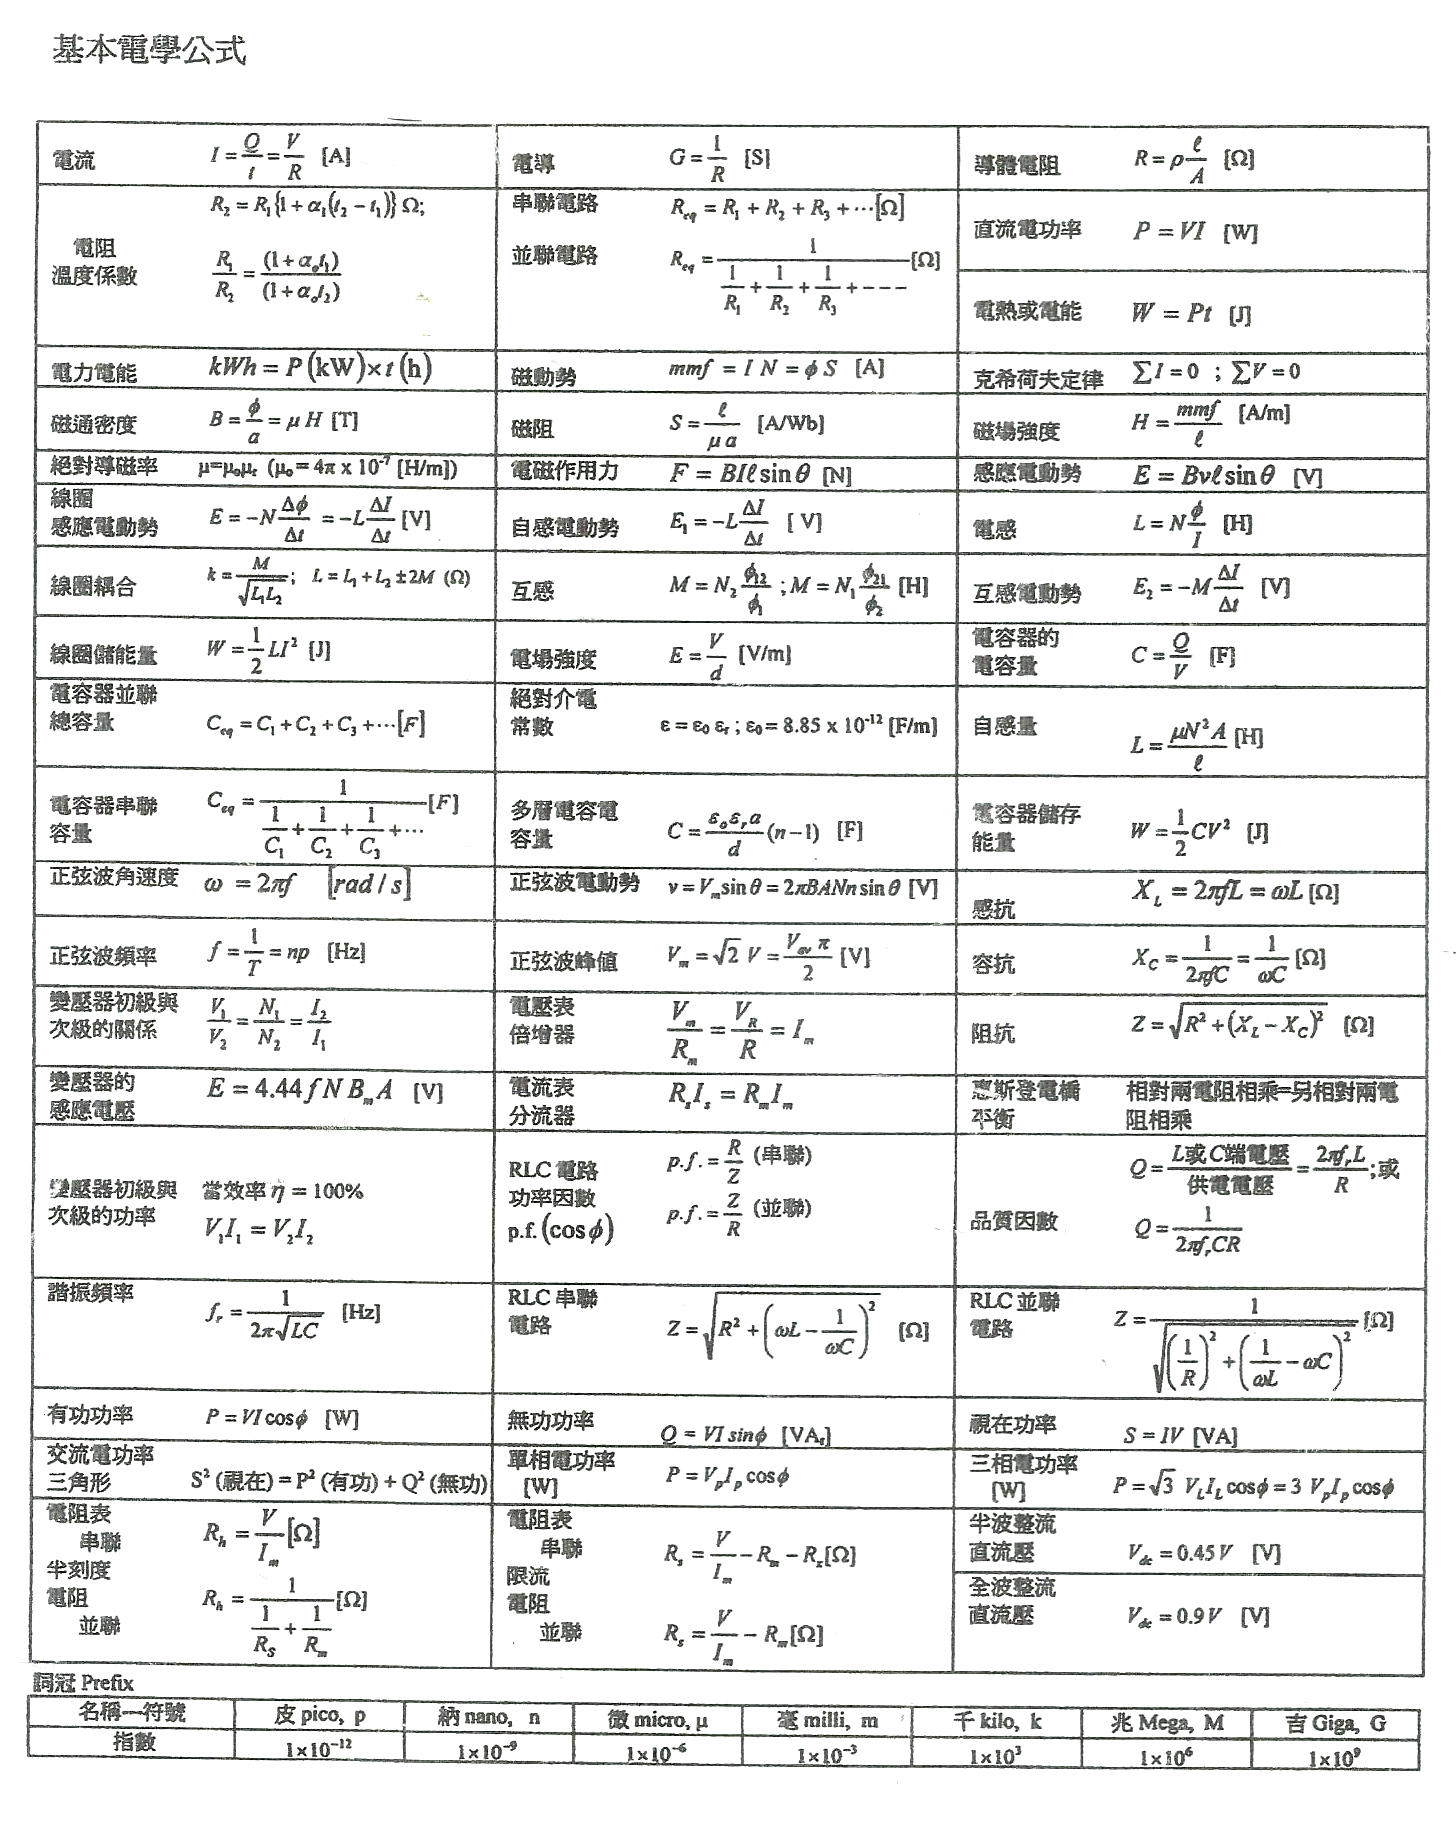 基本電學公式
電流 I = Q/t = V/R [A]
電導 G = 1/R [S]
導體電阻 R = ρ ℓ/A [Ω]
電阻
溫度係數
R₂ = R₁{1 + α₁(t₂ − t₁)} Ω;
R₁/R₂ = (1 + αₒt₁)/(1 + αₒt₂)
串聯電路 R_eq = R₁ + R₂ + R₃ + ⋯ [Ω]
並聯電路 R_eq = 1/(1/R₁ + 1/R₂ + 1/R₃ + - - -) [Ω]
直流電功率 P = VI [W]
電熱或電能 W = Pt [J]
電力電能 kWh = P (kW) × t (h)
磁動勢 mmf = I N = ϕ S [A]
克希荷夫定律 ∑I = 0 ; ∑V = 0
磁通密度 B = ϕ/a = μ H [T]
磁阻 S = ℓ/(μ a) [A/Wb]
磁場強度 H = mmf/ℓ [A/m]
絕對導磁率 μ=μₒμᵣ (μₒ = 4π x 10⁻⁷ [H/m])
電磁作用力 F = BIℓ sin θ [N]
感應電動勢 E = Bvℓ sin θ [V]
線圈
感應電動勢 E = −N Δϕ/Δt = −L ΔI/Δt [V]
自感電動勢 E₁ = −L ΔI/Δt [ V]
電感 L = N ϕ/I [H]
線圈耦合 k = M/√(L₁L₂); L = L₁ + L₂ ± 2M (Ω)
互感 M = N₂ ϕ₁₂/ϕ₁ ; M = N₁ ϕ₂₁/ϕ₂ [H]
互感電動勢 E₂ = −M ΔI/Δt [V]
線圈儲能量 W = 1/2 LI² [J]
電場強度 E = V/d [V/m]
電容器的
電容量 C = Q/V [F]
電容器並聯
總容量 C_eq = C₁ + C₂ + C₃ + ⋯ [F]
絕對介電
常數 ε = ε₀ εᵣ ; ε₀ = 8.85 x 10⁻¹² [F/m]
自感量 L = μN²A/ℓ [H]
電容器串聯
容量 C_eq = 1/(1/C₁ + 1/C₂ + 1/C₃ + ⋯) [F]
多層電容電
容量 C = εₒεᵣa/d (n−1) [F]
電容器儲存
能量 W = 1/2 CV² [J]
正弦波角速度 ω = 2πf [rad / s]
正弦波電動勢 v = V_m sin θ = 2πBANn sin θ [V]
感抗 X_L = 2πfL = ωL [Ω]
正弦波頻率 f = 1/T = np [Hz]
正弦波峰值 V_m = √2 V = V_av π/2 [V]
容抗 X_C = 1/(2πfC) = 1/(ωC) [Ω]
變壓器初級與
次級的關係 V₁/V₂ = N₁/N₂ = I₂/I₁
電壓表
倍增器 V_m/R_m = V_R/R = I_m
阻抗 Z = √(R² + (X_L − X_C)²) [Ω]
變壓器的
感應電壓 E = 4.44 f N B_m A [V]
電流表
分流器 R_s I_s = R_m I_m
惠斯登電橋
平衡
相對兩電阻相乘=另相對兩電
阻相乘
變壓器初級與
次級的功率
當效率 η = 100%
V₁I₁ = V₂I₂
RLC 電路
功率因數
p.f. (cos ϕ)
p.f. = R/Z (串聯)
p.f. = Z/R (並聯)
品質因數
Q = L或C端電壓/供電電壓 = 2πfᵣL/R ;或
Q = 1/(2πfᵣCR)
諧振頻率 fᵣ = 1/(2π√LC) [Hz]
RLC 串聯
電路 Z = √(R² + (ωL − 1/ωC)²) [Ω]
RLC 並聯
電路 Z = 1/√((1/R)² + (1/ωL − ωC)²) [Ω]
有功功率 P = VI cos ϕ [W]
無功功率 Q = VI sin ϕ [VAᵣ]
視在功率 S = IV [VA]
交流電功率
三角形 S² (視在) = P² (有功) + Q² (無功)
單相電功率
[W] P = V_p I_p cos ϕ
三相電功率
[W] P = √3 V_L I_L cos ϕ = 3 V_p I_p cos ϕ
電阻表
串聯 R_h = V/I_m [Ω]
半刻度
電阻
並聯 R_h = 1/(1/R_S + 1/R_m) [Ω]
電阻表
串聯 R_s = V/I_m − R_m − R_z [Ω]
限流
電阻
並聯 R_s = V/I_m − R_m [Ω]
半波整流
直流壓 V_dc = 0.45 V [V]
全波整流
直流壓 V_dc = 0.9 V [V]
詞冠 Prefix
名稱—符號 皮 pico, p 納 nano, n 微 micro, μ 毫 milli, m 千 kilo, k 兆 Mega, M 吉 Giga, G
指數 1×10⁻¹² 1×10⁻⁹ 1×10⁻⁶ 1×10⁻³ 1×10³ 1×10⁶ 1×10⁹